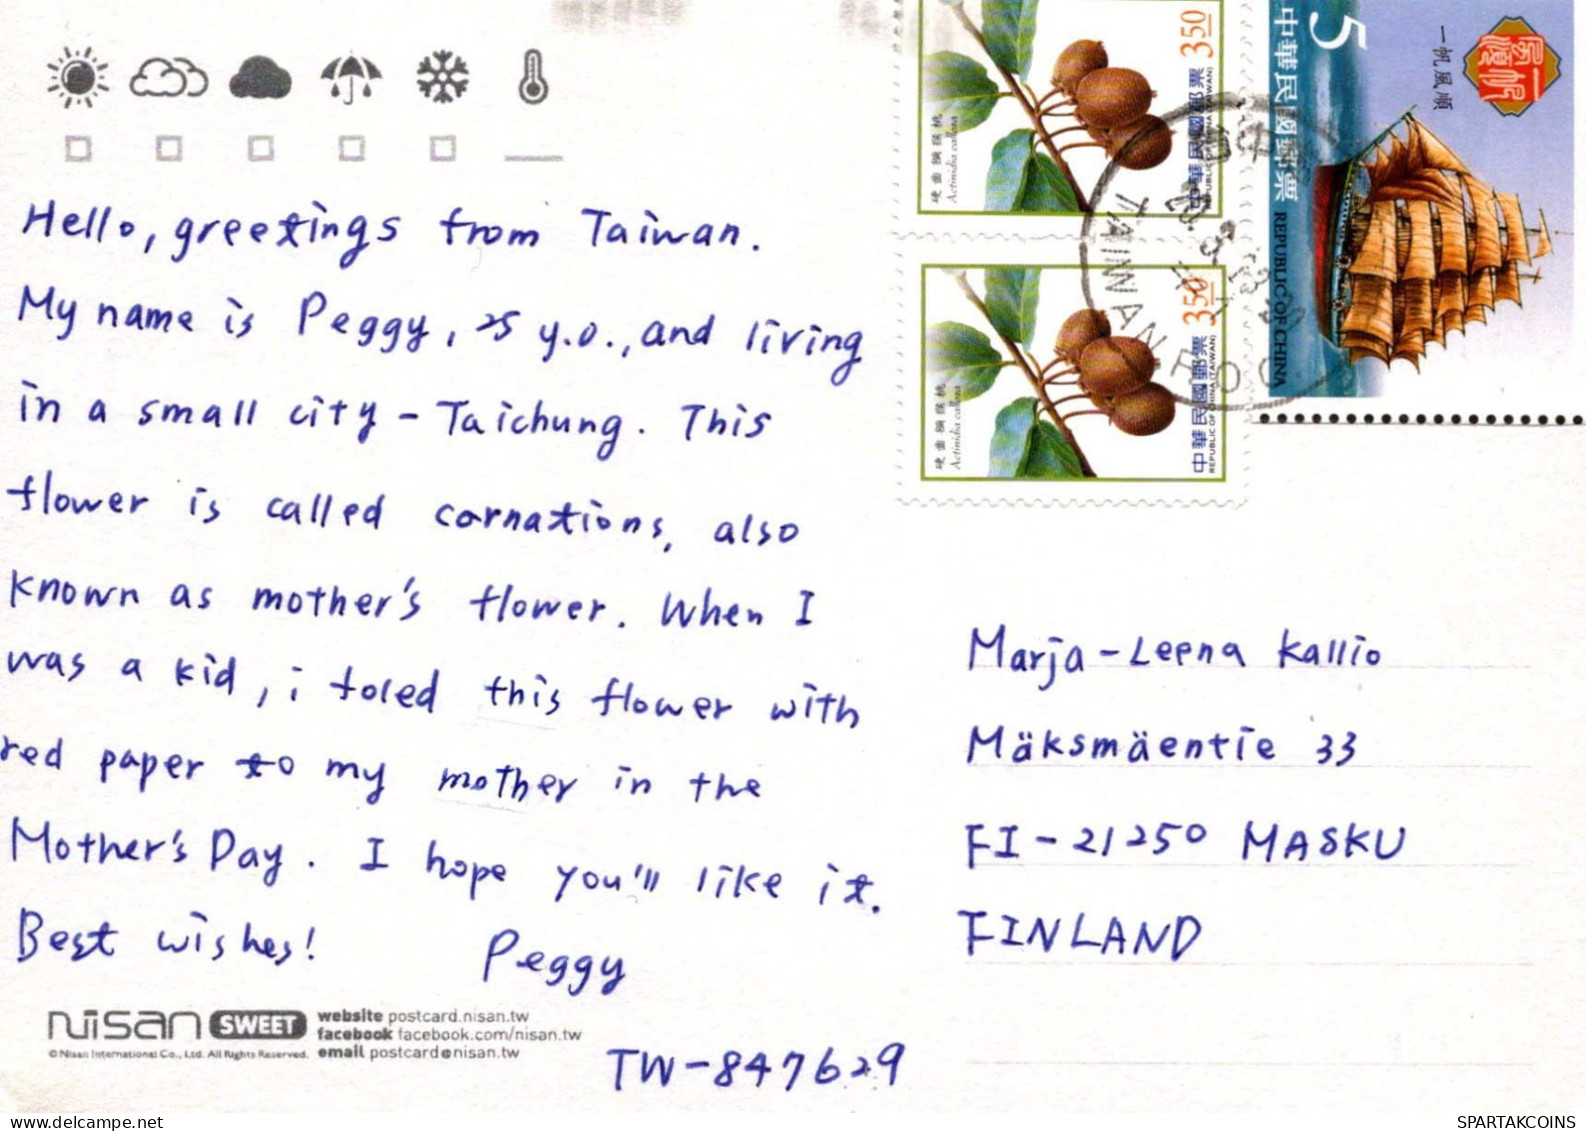 Hello, greetings from Taiwan.
My name is Peggy, 25 y.o., and living
in a small city - Taichung. This
flower is called carnations, also
known as mother's flower. When I
was a kid, i foled this flower with
red paper to my mother in the
Mother's Day. I hope you'll like it.
Best wishes! Peggy
TW-847629
nisan SWEET
© Nisan International Co., Ltd. All Rights Reserved.
website postcard.nisan.tw
facebook facebook.com/nisan.tw
email postcard@nisan.tw
350
中華民國郵票
REPUBLIC OF CHINA (TAIWAN)
硬齒獼猴桃
Actinidia callosa
350
中華民國郵票
REPUBLIC OF CHINA (TAIWAN)
硬齒獼猴桃
Actinidia callosa
5
中華民國郵票
REPUBLIC OF CHINA
一帆風順
一帆風順
TAIWAN R O C
Marja-Leena Kallio
Mäksmäentie 33
FI-21250 MASKU
FINLAND
SPARTAKCOINS